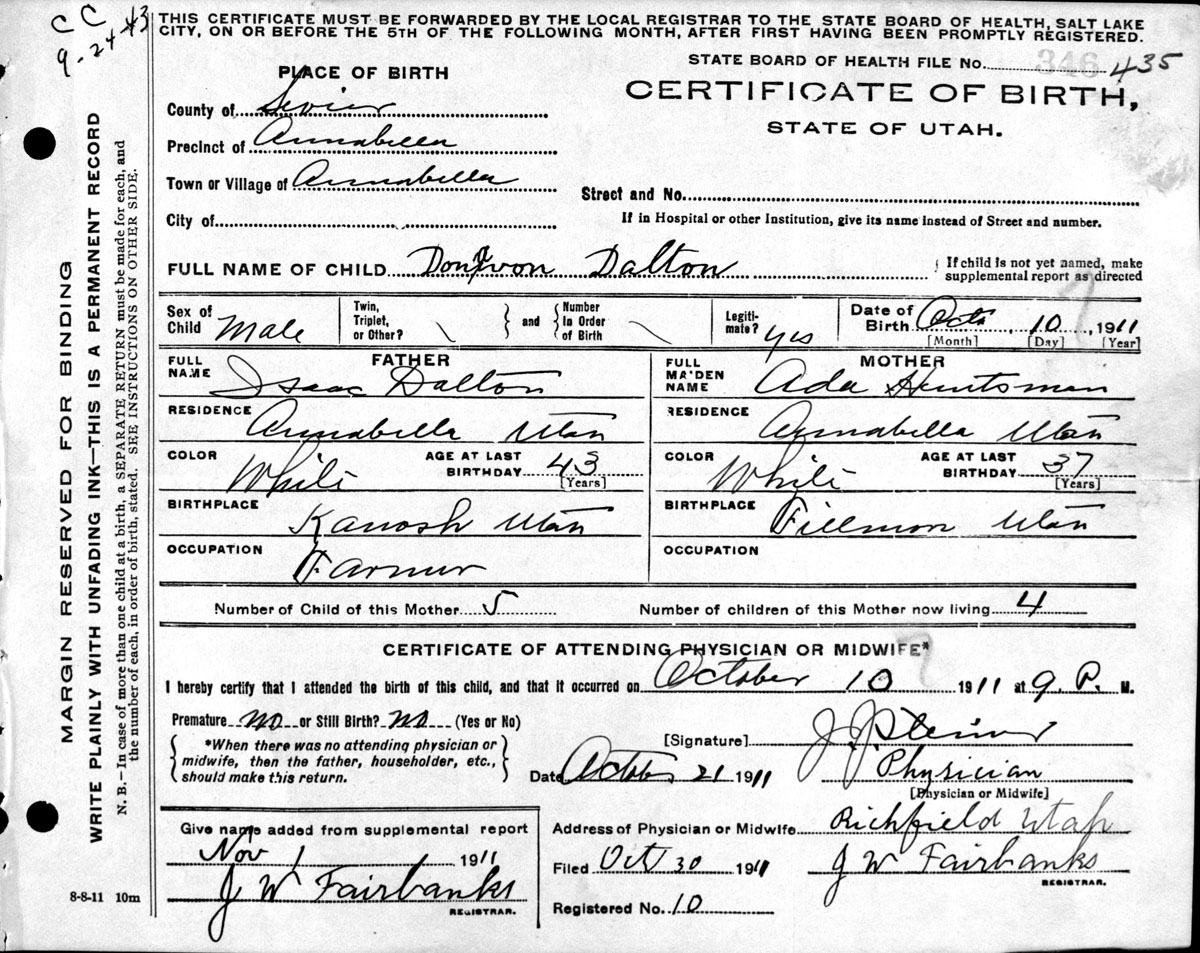 CC
9-24-43
THIS CERTIFICATE MUST BE FORWARDED BY THE LOCAL REGISTRAR TO THE STATE BOARD OF HEALTH, SALT LAKE
CITY, ON OR BEFORE THE 5TH OF THE FOLLOWING MONTH, AFTER FIRST HAVING BEEN PROMPTLY REGISTERED.
STATE BOARD OF HEALTH FILE No. 346 435
PLACE OF BIRTH
CERTIFICATE OF BIRTH,
STATE OF UTAH.
County of Sevier
Precinct of Annabella
Town or Village of Annabella
Street and No.
City of
If in Hospital or other Institution, give its name instead of Street and number.
FULL NAME OF CHILD Donavon Dalton
{ If child is not yet named, make
supplemental report as directed
Sex of Child Male
Twin, Triplet, or Other? \ } and { Number In Order of Birth \
Legiti-mate? yes
Date of Birth Oct, 10, 1911
[Month] [Day] [Year]
FATHER
FULL NAME Isaac Dalton
RESIDENCE Annabella Utah
COLOR White AGE AT LAST BIRTHDAY 43 [Years]
BIRTHPLACE Kanosh Utah
OCCUPATION Farmer
MOTHER
FULL MAIDEN NAME Ada Huntsman
RESIDENCE Annabella Utah
COLOR White AGE AT LAST BIRTHDAY 37 [Years]
BIRTHPLACE Fillmore Utah
OCCUPATION
Number of Child of this Mother 5 Number of children of this Mother now living 4
CERTIFICATE OF ATTENDING PHYSICIAN OR MIDWIFE*
I hereby certify that I attended the birth of this child, and that it occurred on October 10 1911 at 9 P. M.
Premature no or Still Birth? no (Yes or No)
{ *When there was no attending physician or
midwife, then the father, householder, etc.,
should make this return. }
[Signature] J. J. Steiner
Date October 21 1911 Physician
[Physician or Midwife]
Give name added from supplemental report
Nov 1 1911
J W Fairbanks
REGISTRAR.
Address of Physician or Midwife Richfield Utah
Filed Oct 30 1911 J W Fairbanks
REGISTRAR.
Registered No. 10
8-8-11 10m
MARGIN RESERVED FOR BINDING
WRITE PLAINLY WITH UNFADING INK—THIS IS A PERMANENT RECORD
N. B.—In case of more than one child at a birth, a SEPARATE RETURN must be made for each, and
the number of each, in order of birth, stated. SEE INSTRUCTIONS ON OTHER SIDE.